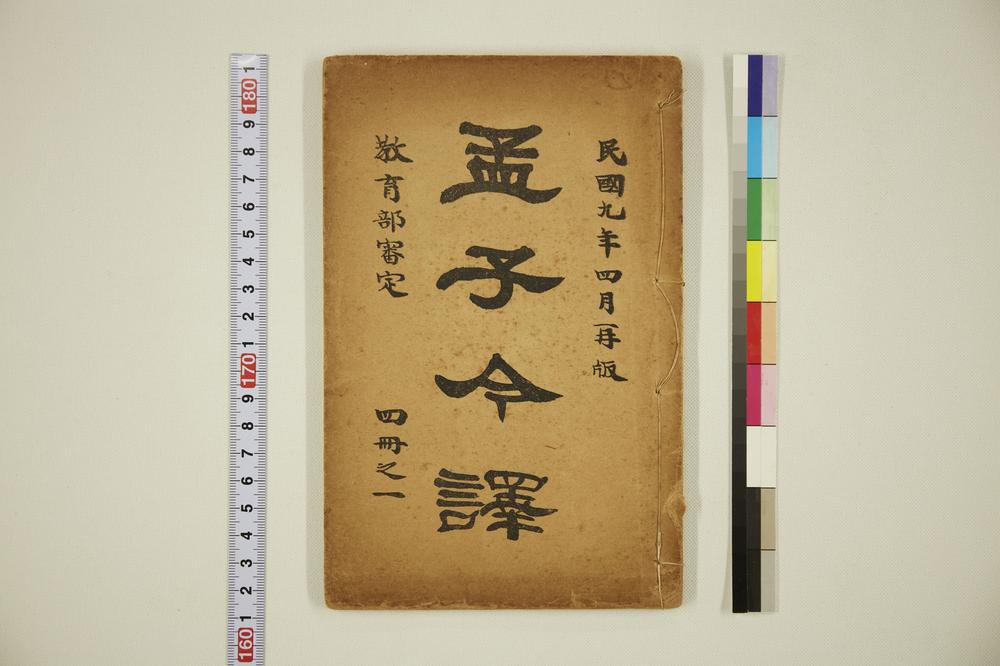 民國九年四月再版
孟子今譯
教育部審定
四冊之一
1 180 9 8 7 6 5 4 3 2 1 170 9 8 7 6 5 4 3 2 1 160